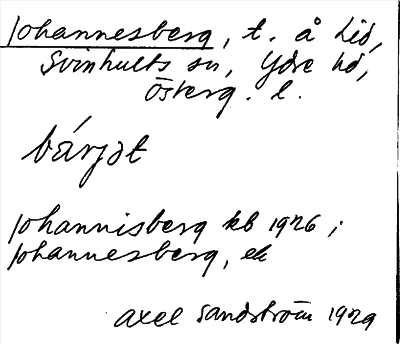 Johannesberg, t. å Lid,
Svinhults sn, Ydre hd,
Österg. l.
bárjǝt
Johannisberg kb 1926;
Johannesberg, ek
Axel Sandström 1929